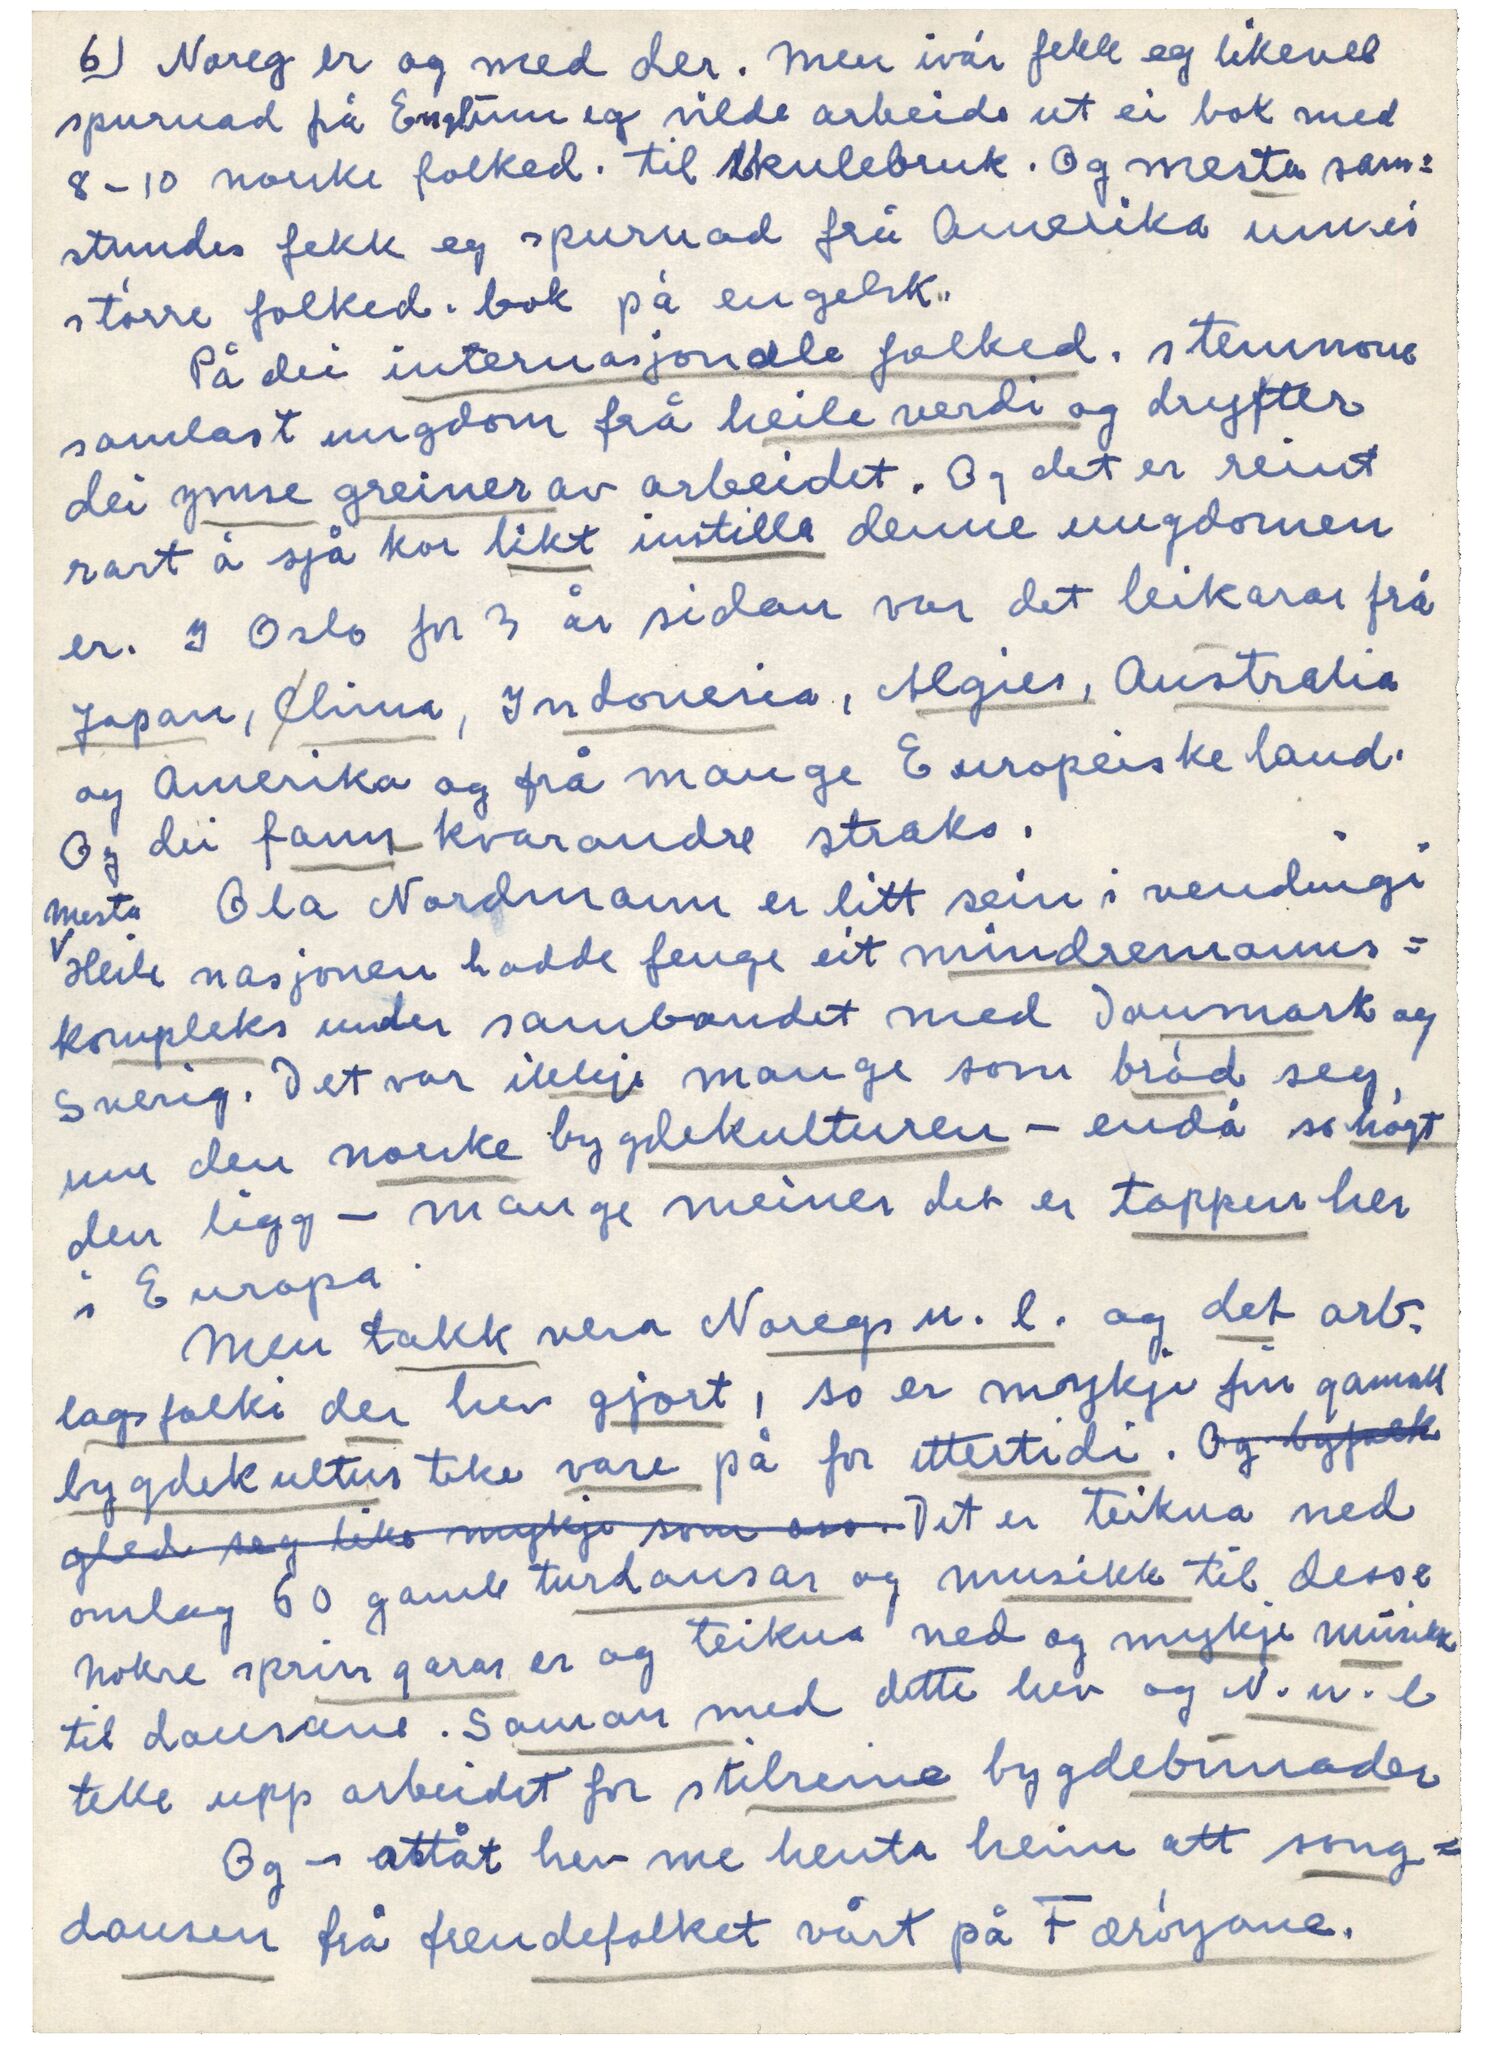 6) Noreg er og med der. Men ivår fekk eg likevel
spurnad frå Engl. um eg vilde arbeide ut ei bok med
8-10 norske folked. til skulebruk. Og mesta sam=
stundes fekk eg spurnad frå Amerika um ei
større folked. bok på engelsk.
På dei internasjonale folked. stemnone
samlast ungdom frå heile verdi og dryfter
dei ymse greiner av arbeidet. Og det er reint
rart å sjå kor likt instilla denne ungdomen
er. I Oslo for 3 år sidan var det leikarar frå
Japan, China, Indonesia, Algier, Australia
og Amerika og frå mange Europeiske land.
Og dei fann kvarandre straks.
Ola Nordmann er litt sein i vendingi
mesta
Heile nasjonen hadde fenge eit mindremanns=
kompleks under sambandet med Danmark og
Sverig. Det var ikkje mange som bród seg
um den norske bygdekulturen - endå so høgt
den ligg - mange meiner det er toppen her
i Europa.
Men takk vera Noregs u. l. og det arb.
lagsfolki der hev gjort, so er mykje fin gamall
bygdekultur teke vare på for ettertidi. Og byfolk
gled seg like mykje som oss. Det er teikna ned
omlag 60 gamle turdansar og musikk til desse
Nokre springarar er og teikna ned og mykje musikk
til dansane. Saman med dette hev og N. u. l
teke upp arbeidet for stilreine bygdebunader
Og - attåt hev me henta heim att song=
dansen frå frendefolket vårt på Færøyane.